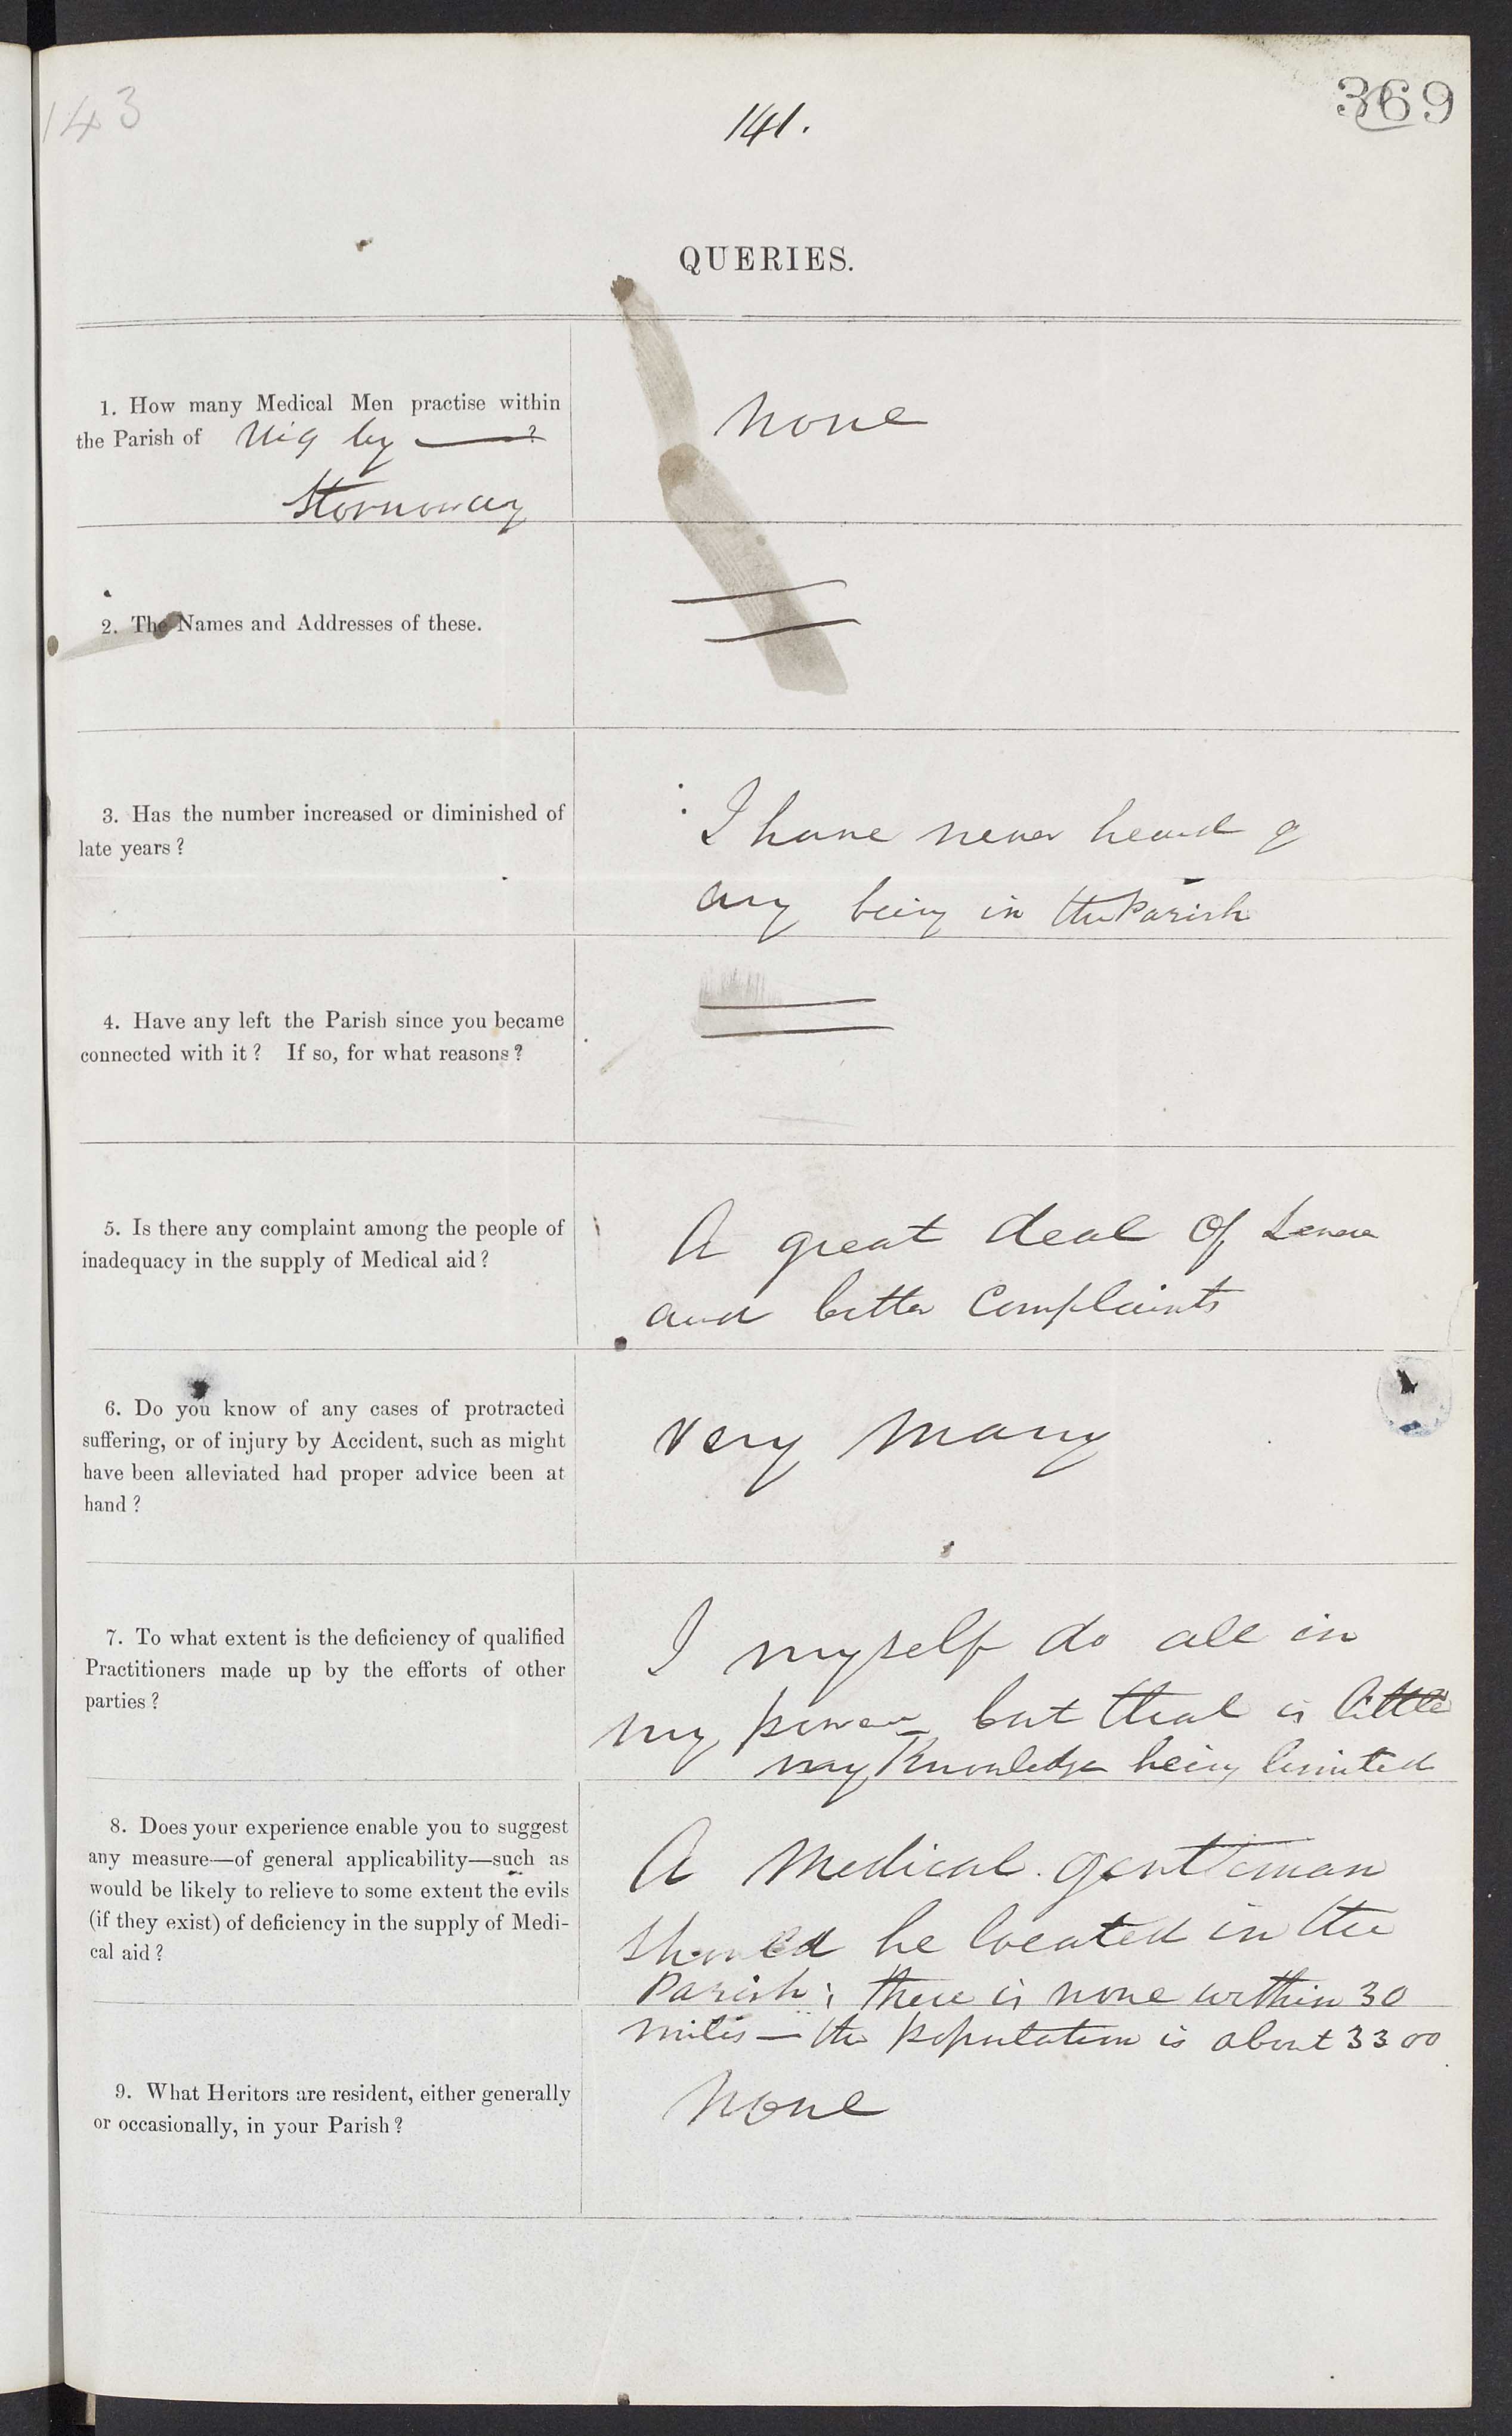 143
141.
369
QUERIES.
1. How many Medical Men practise within
the Parish of Uig by ——?
Stornoway
none
2. The Names and Addresses of these.
3. Has the number increased or diminished of
late years?
I have never heard of
any being in the Parish
4. Have any left the Parish since you became
connected with it? If so, for what reasons?
5. Is there any complaint among the people of
inadequacy in the supply of Medical aid?
A great deal of
and bitter Complaints
6. Do you know of any cases of protracted
suffering, or of injury by Accident, such as might
have been alleviated had proper advice been at
hand?
very many
7. To what extent is the deficiency of qualified
Practitioners made up by the efforts of other
parties?
I myself do all in
my power but that is little
my knowledge being limited
8. Does your experience enable you to suggest
any measure—of general applicability—such as
would be likely to relieve to some extent the evils
(if they exist) of deficiency in the supply of Medi-
cal aid?
A Medical gentleman
should be located in the
Parish; there is none within 30
miles — the population is about 3300
9. What Heritors are resident, either generally
or occasionally, in your Parish?
None